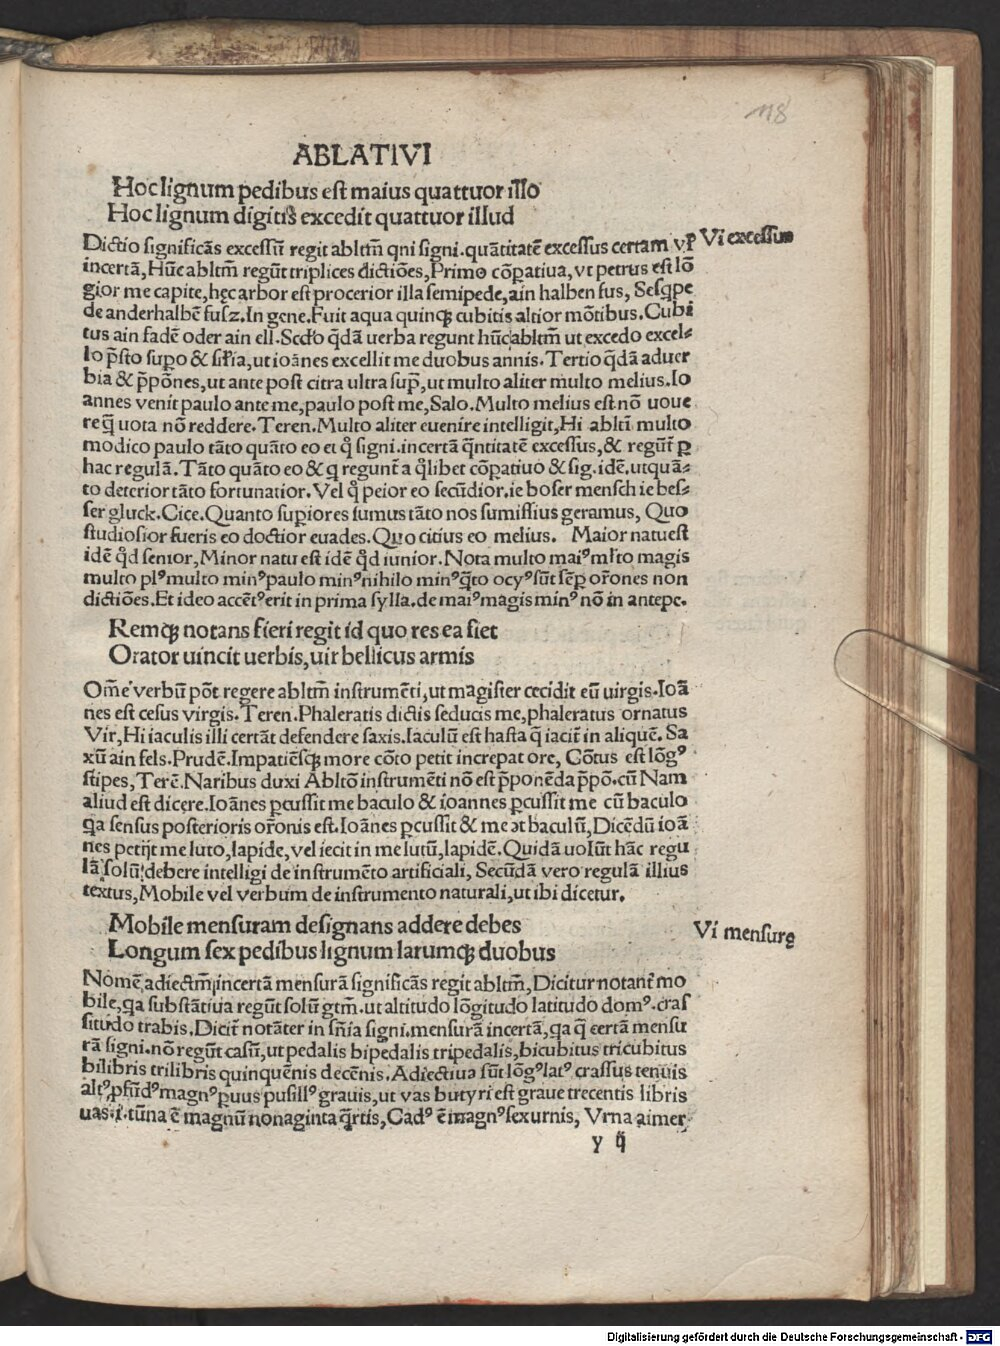 118
ABLATIVI
Hoc lignum pedibus est maius quattuor illo
Hoc lignum digitis excedit quattuor illud
Dictio significãs excessũ regit abltm̃ qni signi. quãtitatẽ excessus certam vꝉ
Vi excessus
incertã, Hũc abltm̃ regũt triplices dictiões, Primo cõꝑatiua, vt petrus est lõ
gior me capite, hęc arbor est procerior illa semipede, ain halben fus, Sesqpe
de anderhalbẽ fusz. In gene. Fuit aqua quinqꝫ cubitis altior mõtibus. Cubi
tus ain fadẽ oder ain ell. Scdo q̃dã uerba regunt hũc abltm̃ ut excedo excel⸗
lo p̃sto suꝑo & sil̃ia, ut ioãnes excellit me duobus annis. Tertio q̃dã aduer
bia & p̃põnes, ut ante post citra ultra suꝑ, ut multo aliter multo melius. Io
annes venit paulo ante me, paulo post me, Salo. Multo melius est nõ uoue
re q̃ uota nõ reddere. Teren. Multo aliter euenire intelligit, Hi abltĩ multo
modico paulo tãto quãto eo et q̊ signi. incertã q̃ntitatẽ excessus, & regũt̃ ꝑ
hac regulã. Tãto quãto eo & q regunt̃ a q̊libet cõꝑatiuo & sig. idẽ. utquã⸗
to deterior tãto fortunatior. Vel q̊ peior eo secũdior. ie boser mensch ie bes⸗
ser gluck. Cice. Quanto suꝑiores sumus tãto nos sumissius geramus, Quo
studiosior fueris eo doctior euades. Quo citius eo melius. Maior natu est
idẽ q̊d senior, Minor natu est idẽ q̊d iunior. Nota multo maiꝰ ml̃to magis
multo plꝰ multo minꝰ paulo minꝰ nihilo minꝰ q̃to ocyꝰ sũt sẽꝑ or̃ones non
dictiões. Et ideo accẽtꝰ erit in prima sylla. de maiꝰ magis minꝰ nõ in antepe.
Remqꝫ notans fieri regit id quo res ea fiet
Orator uincit uerbis, uir bellicus armis
Om̃e verbũ põt regere abltm̃ instrumẽti, ut magister cecidit eũ uirgis. Ioã
nes est cesus virgis. Teren. Phaleratis dictis seducis me, phaleratus ornatus
Vir, Hi iaculis illi certãt defendere saxis. Iaculũ est hasta q̃ iacit̃ in aliquẽ. Sa
xũ ain fels. Prudẽ. Impatiẽsqꝫ more cõto petit increpat ore, Cõtus est lõgꝰ
stipes, Terẽ. Naribus duxi Abltõ instrumẽti nõ est p̃ponẽda p̃põ. cũ Nam
aliud est dicere. Ioãnes ꝑcussit me baculo & ioannes ꝑcussit me cũ baculo
qa sensus posterioris or̃onis est. Ioãnes ꝑcussit & me ⁊ baculũ, Dicẽdũ ioã
nes petijt me luto, lapide, vel iecit in me lutũ, lapidẽ. Quidã uolũt hãc regu
lã solũ debere intelligi de instrumẽto artificiali, Secũdã vero regulã illius
textus, Mobile vel verbum de instrumento naturali, ut ibi dicetur.
Mobile mensuram designans addere debes
Vi mensurę
Longum sex pedibus lignum larumqꝫ duobus
Nomẽ adiectm̃ incertã mensurã significãs regit abltm̃, Dicitur notant̃ mo
bile, qa substãtiua regũt solũ gtm̃. ut altitudo lõgitudo latitudo domꝰ. cras
situdo trabis. Dicit̃ notãter in sñia signi. mensurã incertã, qa q̃ certã mensu
rã signi. nõ regũt casũ, ut pedalis bipedalis tripedalis, bicubitus tricubitus
bilibris trilibris quinquẽnis decẽnis. Adiectiua sũt lõgꝰ latꝰ crassus tenuis
altꝰ ꝓfũdꝰ magnꝰ ꝑuus pusillꝰ grauis, ut vas butyri est graue trecentis libris
uas .i. tũna ẽ magnũ nonaginta q̃rtis, Cadꝰ ẽ magnꝰ sex urnis, Vrna aimer
y ij
Digitalisierung gefördert durch die Deutsche Forschungsgemeinschaft - DFG